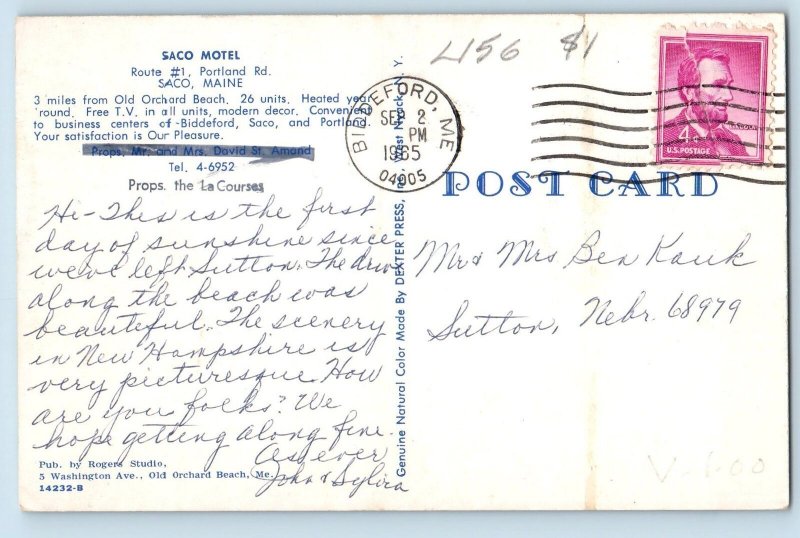 SACO MOTEL
Route #1, Portland Rd.
SACO, MAINE
3 miles from Old Orchard Beach. 26 units. Heated year
'round. Free T.V. in all units, modern decor. Convenient
to business centers of Biddeford, Saco, and Portland.
Your satisfaction is Our Pleasure.
Props. Mr. and Mrs. David St. Amand
Tel. 4-6952
Props. the La Courses
Hi - This is the first
day of sunshine since
we've left Sutton. The drive
along the beach was
beautiful. The scenery
in New Hampshire is
very picturesque. How
are you folks? We
hope getting along fine.
As ever
John & Sylvia
Pub. by Rogers Studio,
5 Washington Ave., Old Orchard Beach, Me.
14232-B
Genuine Natural Color Made By DEXTER PRESS, Inc. West Nyack, N. Y.
4156 $1
BIDDEFORD, ME
SEP 2
PM
1965
04005
4¢
LINCOLN
U.S. POSTAGE
POST CARD
Mr & Mrs Ben Kauk
Sutton, Nebr. 68979
V 1.00